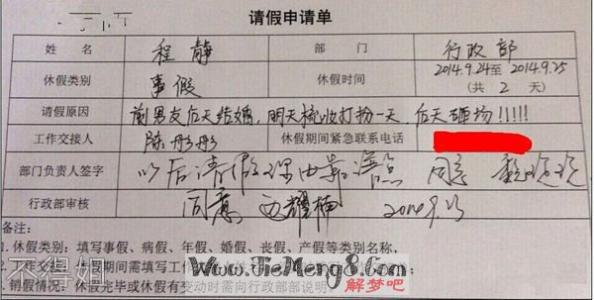 请假申请单
姓 名 程静 部 门 行政部
休假类别 事假 休假时间 2014.9.24至2014.9.25
(共 2 天)
请假原因 前男友后天结婚,明天梳妆打扮一天 后天砸场!!!!!
工作交接人 陈彤彤 休假期间紧急联系电话
部门负责人签字 以后请假理由靠谱点 同意
行政部审核 同意 2014.9.23
备注:
1. 休假类别:填写事假、病假、年假、婚假、丧假、产假等类别名称,
2. 工作交接 休假期间需填写工作
销假情况:休假完毕或休假有变动时需向行政部部说明
不得姐
Www.JieMeng8.Com
解梦吧